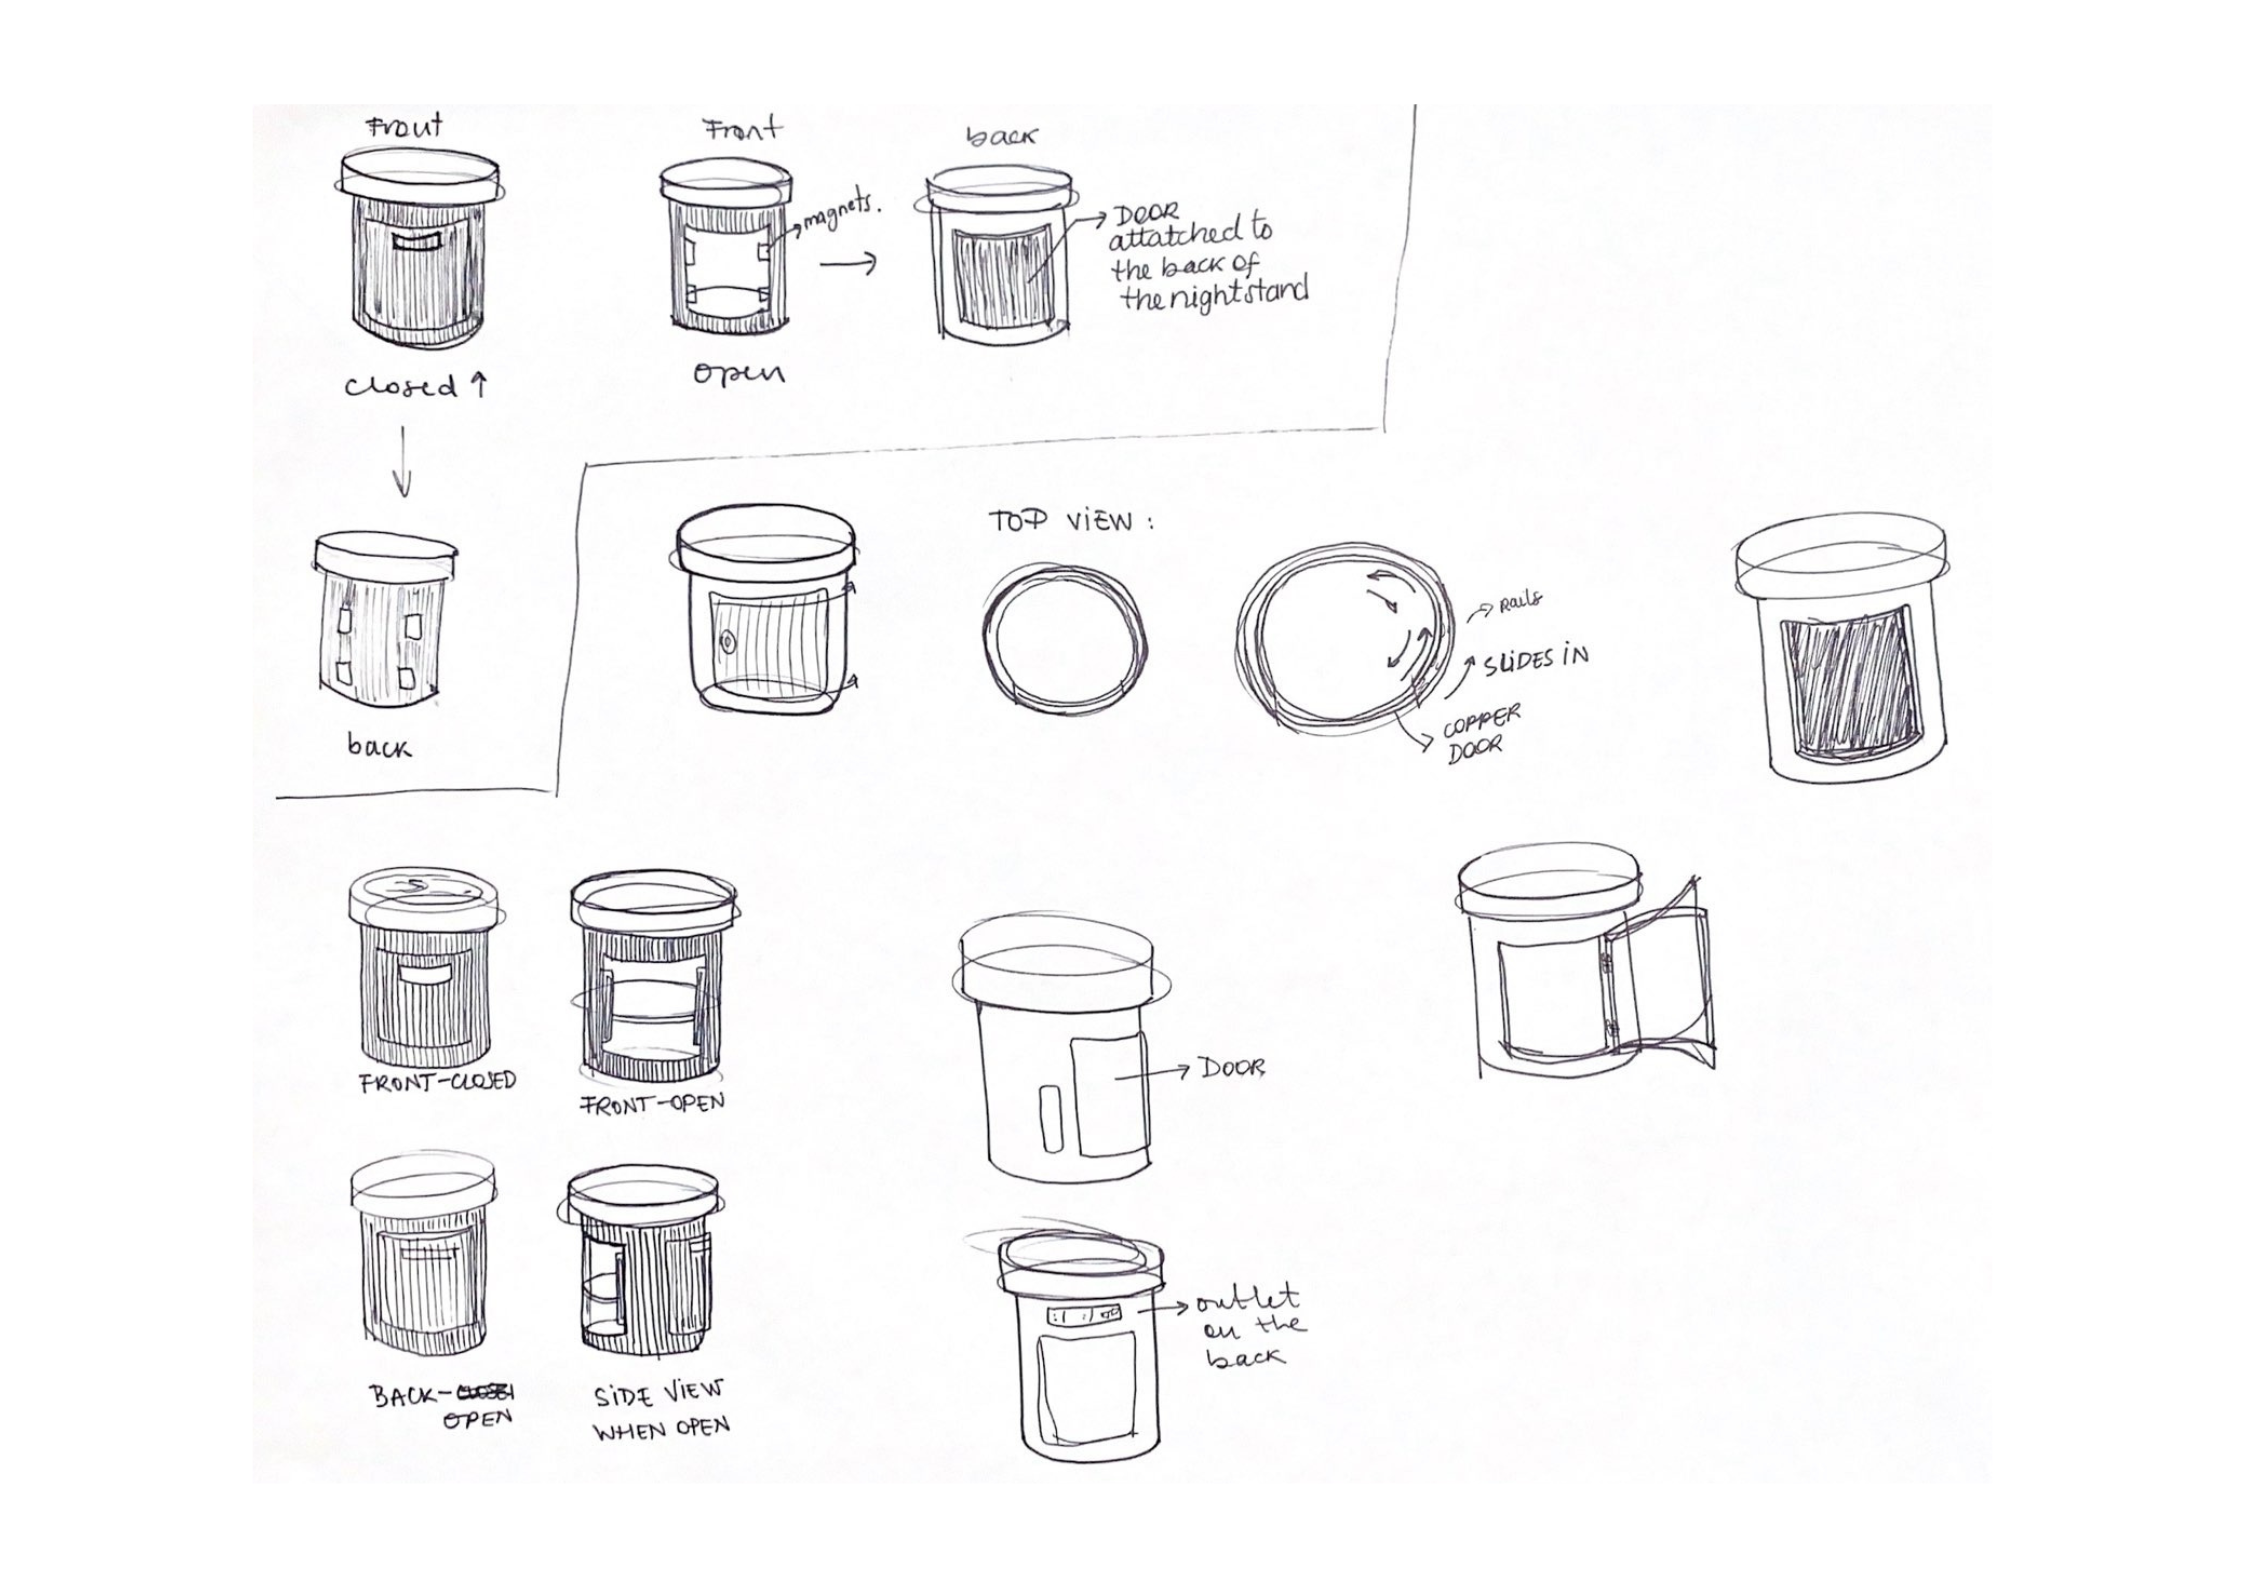 Front
Front
back
magnets.
DOOR
attatched to
the back of
the nightstand
closed ↑
open
back
TOP VIEW :
rails
SLIDES IN
COPPER
DOOR
FRONT-CLOSED
FRONT-OPEN
DOOR
BACK-
OPEN
SIDE VIEW
WHEN OPEN
outlet
on the
back